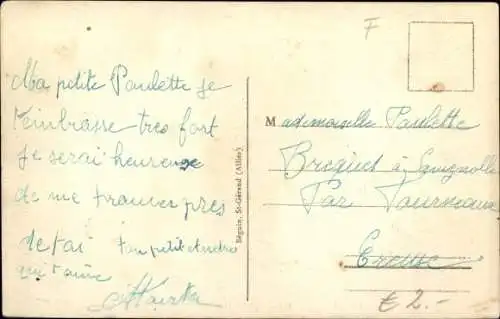 F
Ma petite Paulette je
t'embrasse tres fort
Je serai heureuse
de me trouver près
de toi
qui t'aime
Séguin, St-Gérand (Allier)
Mademoiselle Paulette
Briquet à
Par
Creuse
€ 2.-